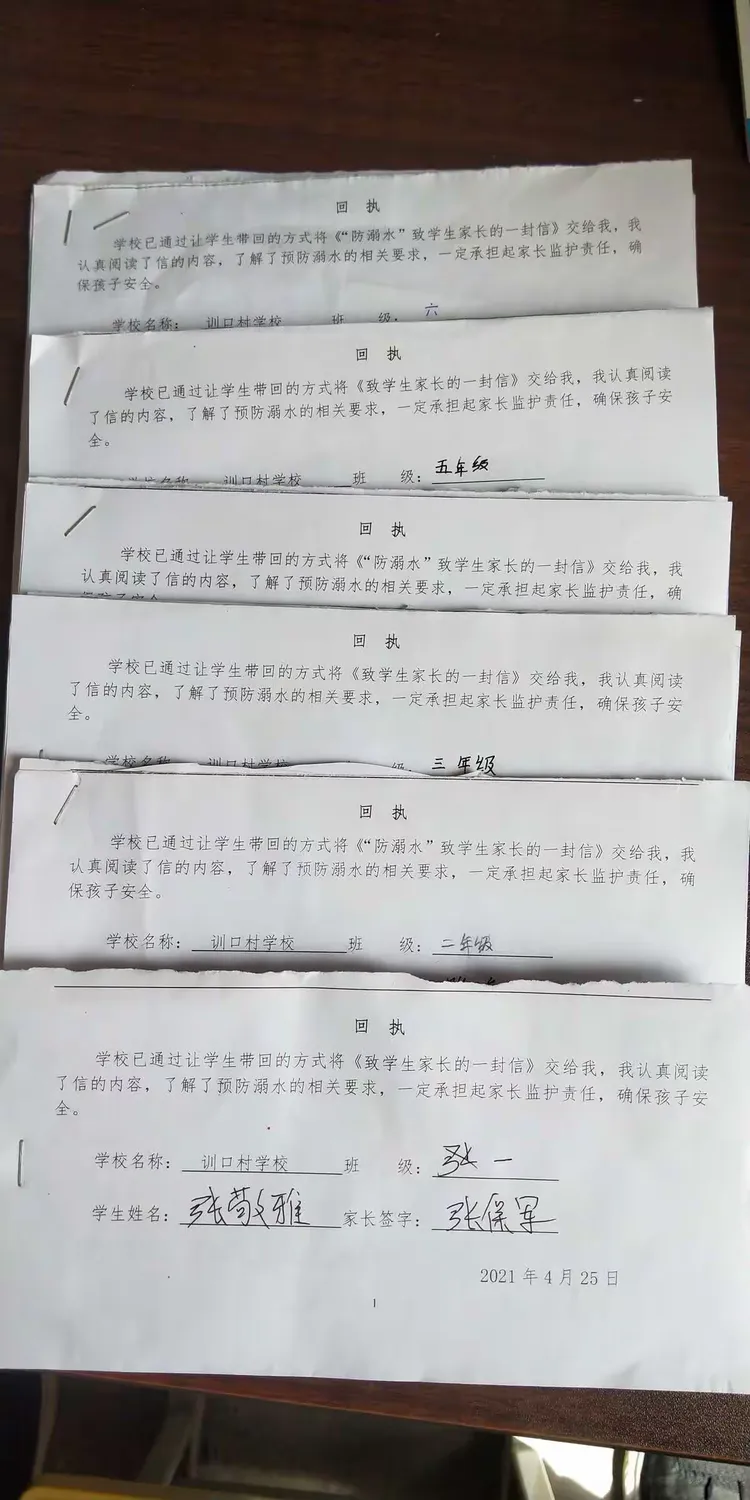 回 执
学校已通过让学生带回的方式将《“防溺水”致学生家长的一封信》交给我，我
认真阅读了信的内容，了解了预防溺水的相关要求，一定承担起家长监护责任，确
保孩子安全。
学校名称： 训口村学校 班 级： 六
回 执
学校已通过让学生带回的方式将《致学生家长的一封信》交给我，我认真阅读
了信的内容，了解了预防溺水的相关要求，一定承担起家长监护责任，确保孩子安
全。
学校名称 训口村学校 班 级：五年级
回 执
学校已通过让学生带回的方式将《“防溺水”致学生家长的一封信》交给我，我
认真阅读了信的内容，了解了预防溺水的相关要求，一定承担起家长监护责任，确
保孩子安全
回 执
学校已通过让学生带回的方式将《致学生家长的一封信》交给我，我认真阅读
了信的内容，了解了预防溺水的相关要求，一定承担起家长监护责任，确保孩子安
全。
学校名称 训口村学校 级：三年级
回 执
学校已通过让学生带回的方式将《“防溺水”致学生家长的一封信》交给我，我
认真阅读了信的内容，了解了预防溺水的相关要求，一定承担起家长监护责任，确
保孩子安全。
学校名称： 训口村学校 班 级：二年级
回 执
学校已通过让学生带回的方式将《致学生家长的一封信》交给我，我认真阅读
了信的内容，了解了预防溺水的相关要求，一定承担起家长监护责任，确保孩子安
全。
学校名称： 训口村学校 班 级：张 一
学生姓名：张敬雅 家长签字：张保军
2021 年 4 月 25 日
1